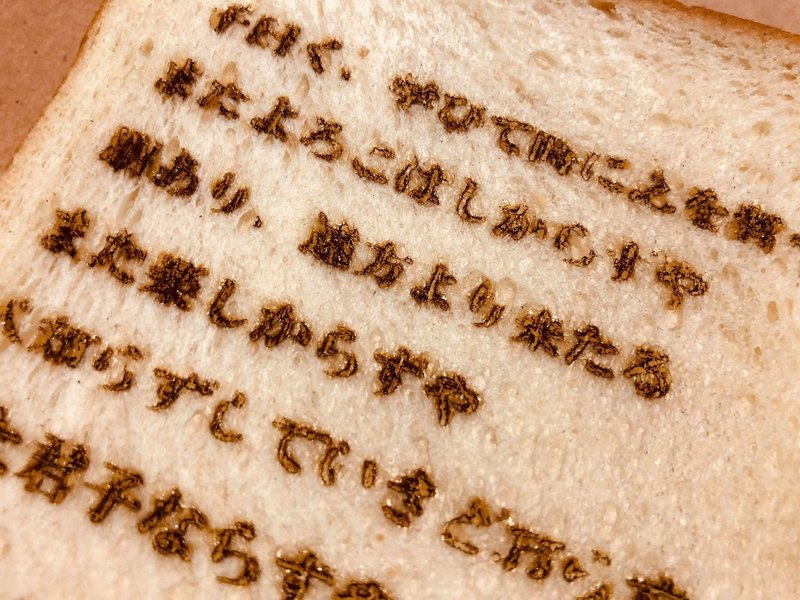 子曰く、学びて時にこれを習
またよろこばしからずや
朋あり、遠方より来たる
また楽しからずや
知らずしていきどおら
君子ならず